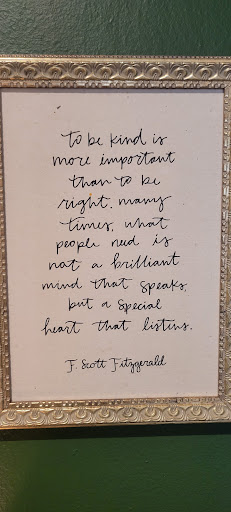 to be kind is
more important
than to be
right. many
times, what
people need is
not a brilliant
mind that speaks,
but a special
heart that listens.
F. Scott Fitzgerald